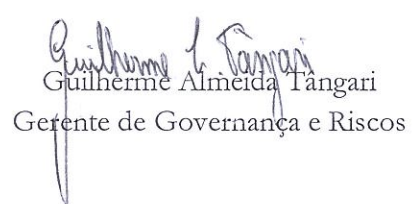 Guilherme A. Tângari
Guilherme Almeida Tângari
Gerente de Governança e Riscos